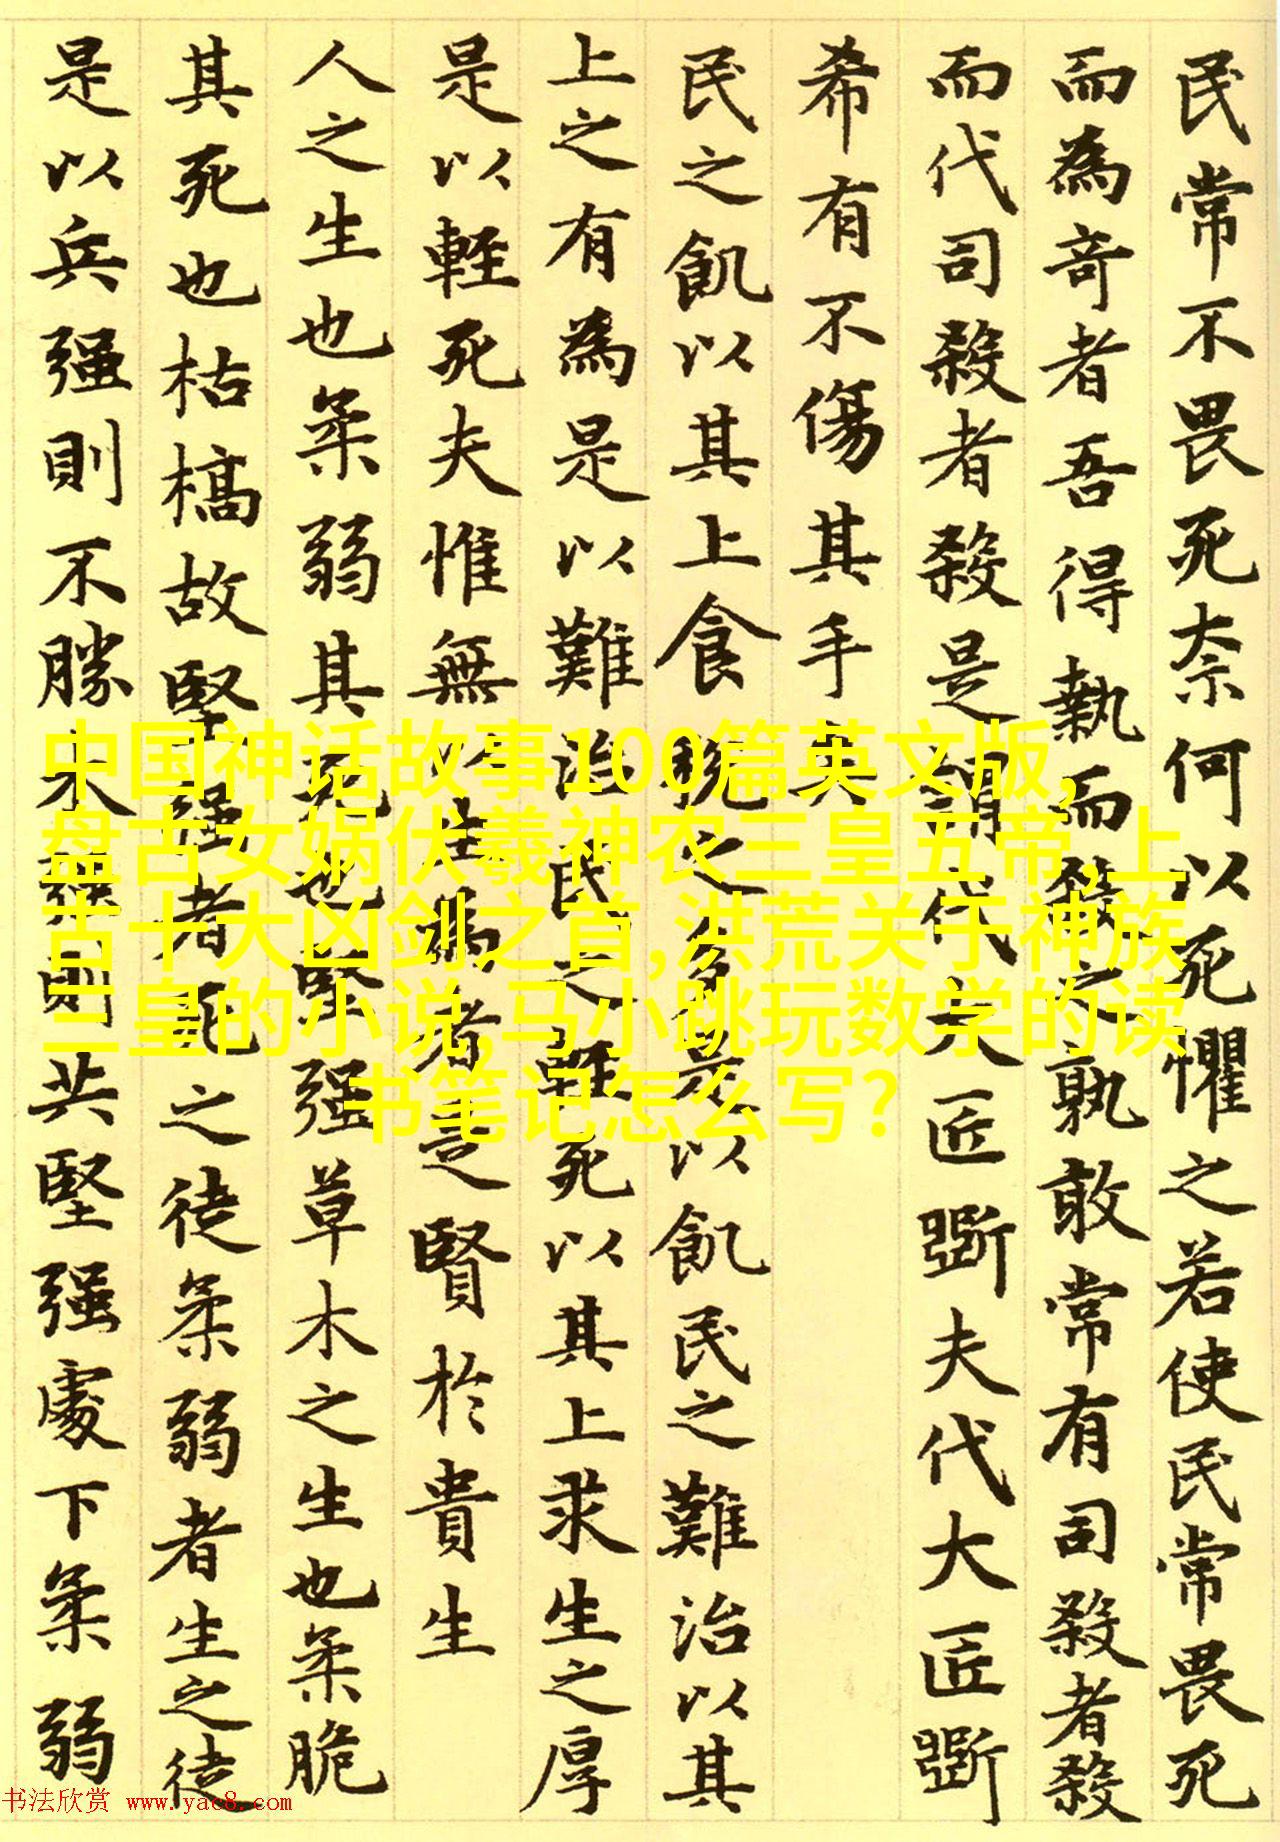 民常不畏死奈何以死懼之若使民常畏死
而為奇者吾得執而殺之孰敢常有司殺者殺
而代司殺者殺是謂代大匠斲夫代大匠斲
希有不傷其手矣
民之飢以其上食税之多是以飢民之難治以其
上之有為是以難治民之輕死以其上求生之厚
是以輕死夫惟無以生為者是賢於貴生
人之生也柔弱其死也堅强草木之生也柔脆
其死也枯槁故堅强者死之徒柔弱者生之徒
是以兵强則不勝木强則共堅强處下柔弱
中国神话故事100篇英文版,
盘古女娲伏羲神农三皇五帝,上
古十大凶剑之首,洪荒关于神族
三皇的小说,马小跳玩数学的读
书笔记怎么写?
书法欣赏 www.yac8.com